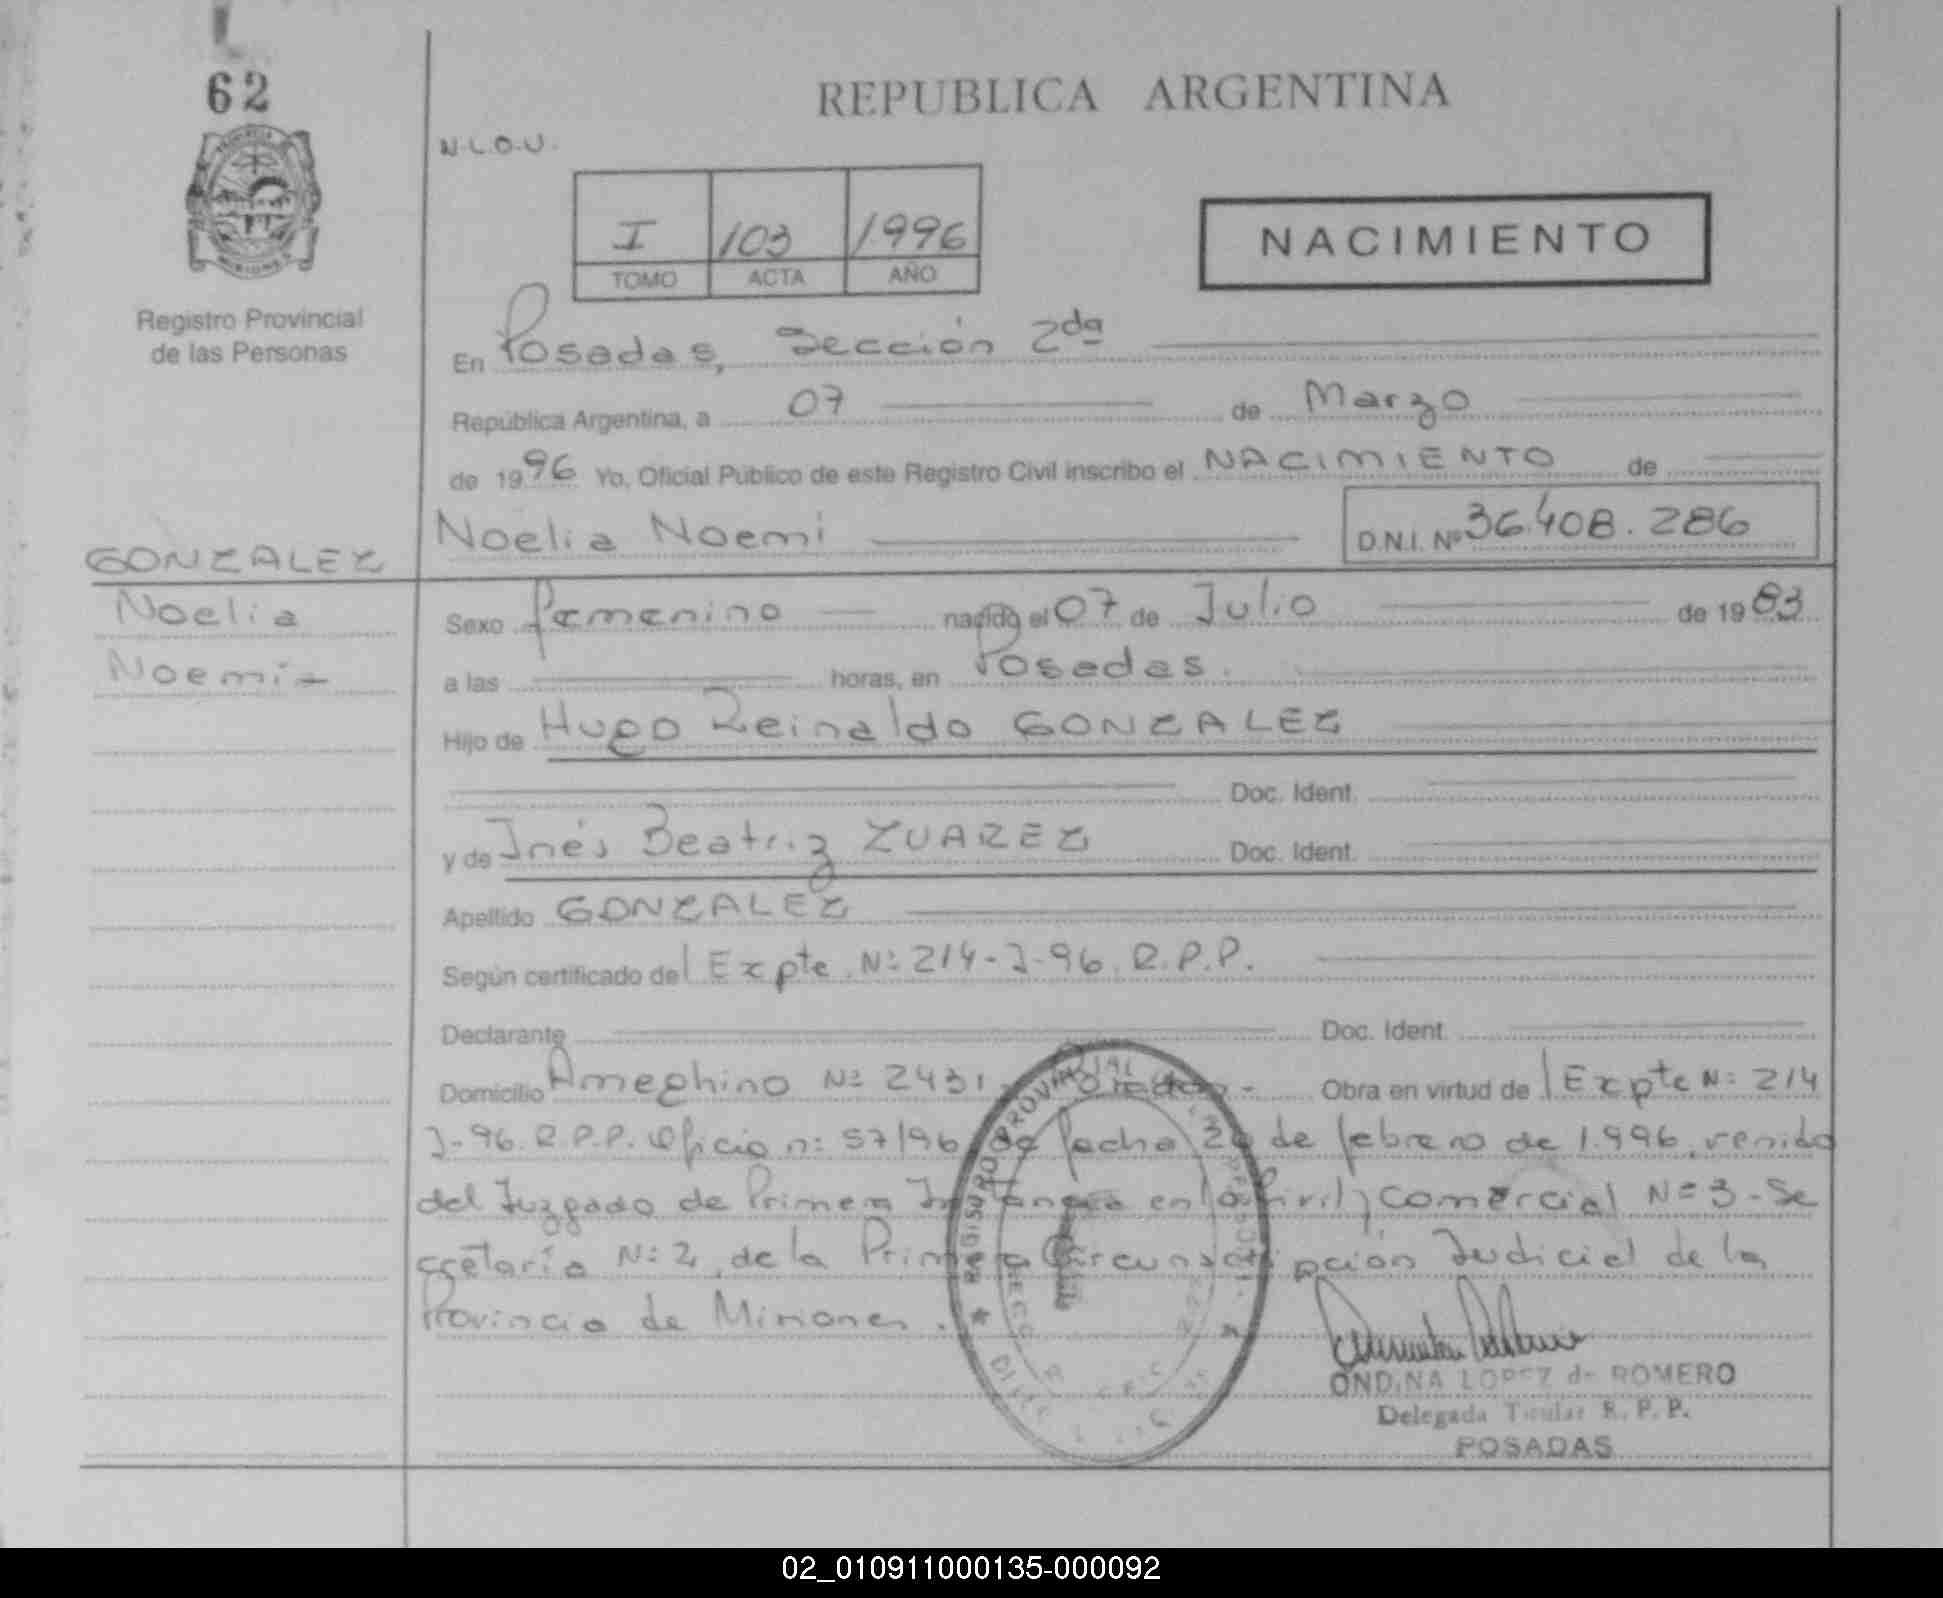 62
REPUBLICA ARGENTINA
N.L.O.U.
I 103 1996
TOMO ACTA AÑO
NACIMIENTO
Registro Provincial
de las Personas
En Posadas, Sección 2da
República Argentina, a 07 de Marzo
de 1996 Yo, Oficial Público de este Registro Civil inscribo el NACIMIENTO de
GONZALEZ Noelia Noemi D.N.I. Nº 36.408.286
Noelia Sexo femenino nacido el 07 de Julio de 1983
Noemi- a las horas, en Posadas.
Hijo de Hugo Reinaldo GONZALEZ
Doc. Ident.
y de Inés Beatriz ZUAREZ Doc. Ident.
Apellido GONZALEZ
Según certificado del Expte. Nº 214-J-96. R.P.P.
Declarante Doc. Ident.
Domicilio Ameghino Nº 2431 Obra en virtud de l Expte Nº 214
J-96. R.P.P. Oficio nº 57/96 de fecha de febrero de 1.996, venido
del Juzgado de Primera Instancia en lo Civil y Comercial Nº 3-Se
cretaría Nº 2, de la Primera Circunscripción Judicial de la
Provincia de Misiones.
ONDINA LOPEZ de ROMERO
Delegada Titular R. P. P.
POSADAS
02_010911000135-000092